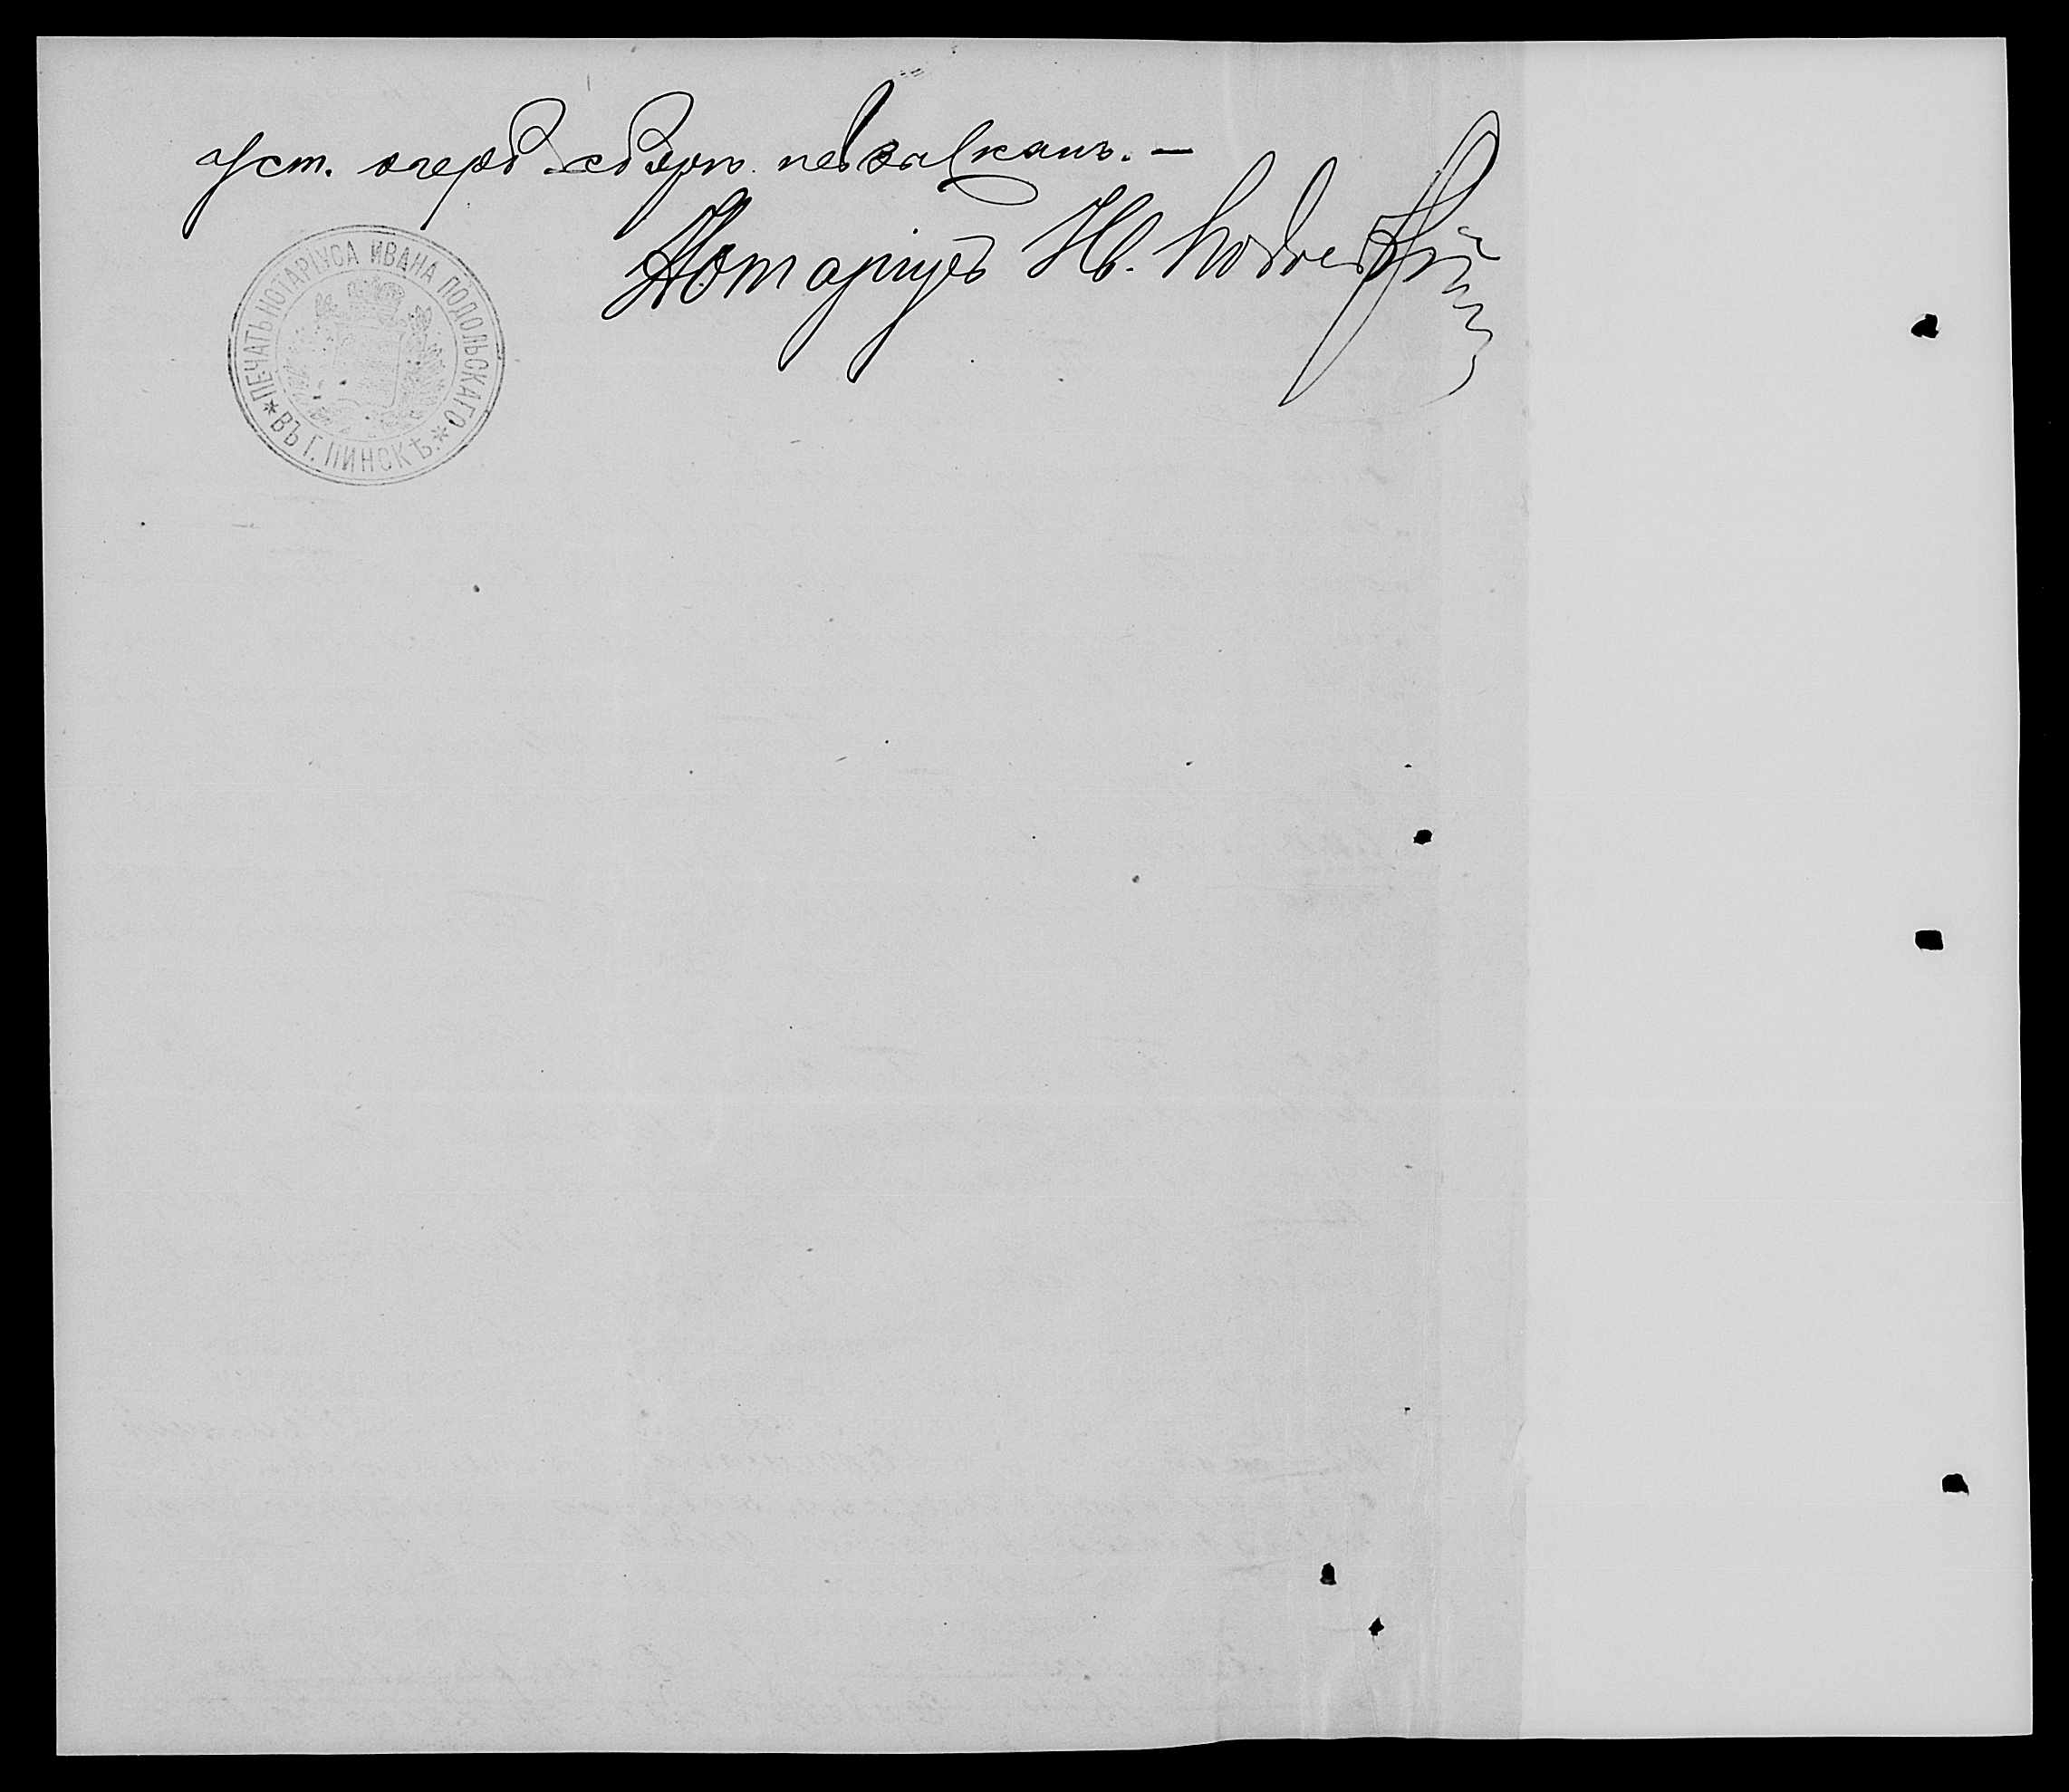 уст. о герб. сборѣ не взыскан.—
Нотаріусъ Ив. Подольскій
ПЕЧАТЬ НОТАРІУСА ИВАНА ПОДОЛЬСКАГО
* ВЪ Г. ПИНСКѢ. *